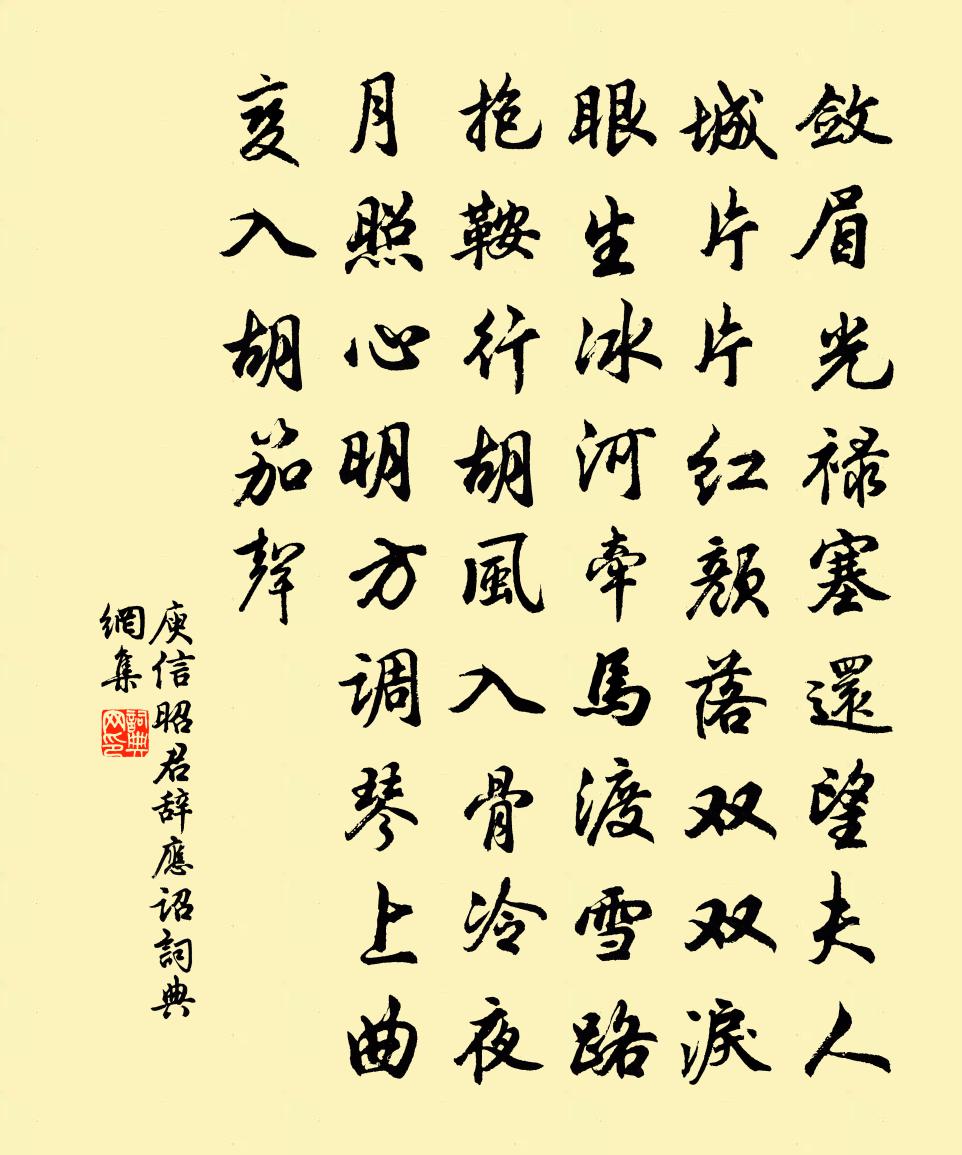 敛眉光禄塞還望夫人
城片片红顏落双双淚
眼生冰河牽馬渡雪路
抱鞍行胡風入骨冷夜
月照心明方调琴上曲
变入胡笳聲
庾信昭君辞應诏詞典
網集
詞典
网印